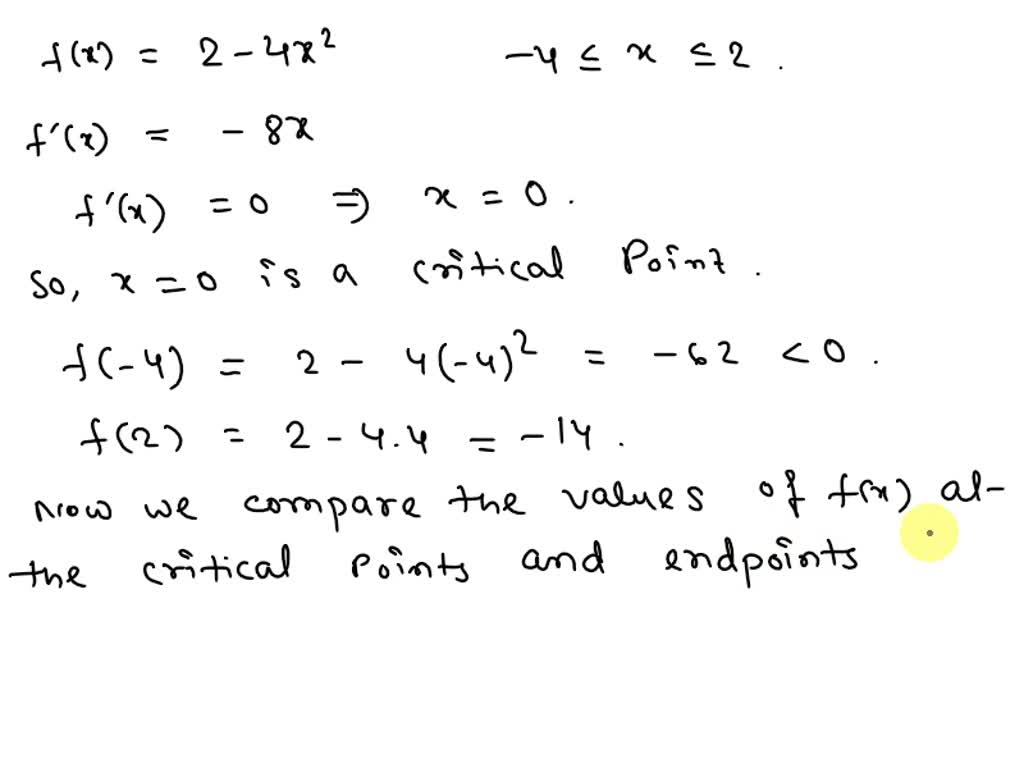 f(x) = 2 - 4x² -4 ≤ x ≤ 2 .
f'(x) = - 8x
f'(x) = 0 ⇒ x = 0 .
So, x = 0 is a critical Point .
f(-4) = 2 - 4(-4)² = -62 < 0 .
f(2) = 2 - 4.4 = -14 .
now we compare the values of f(x) at
the critical points and endpoints